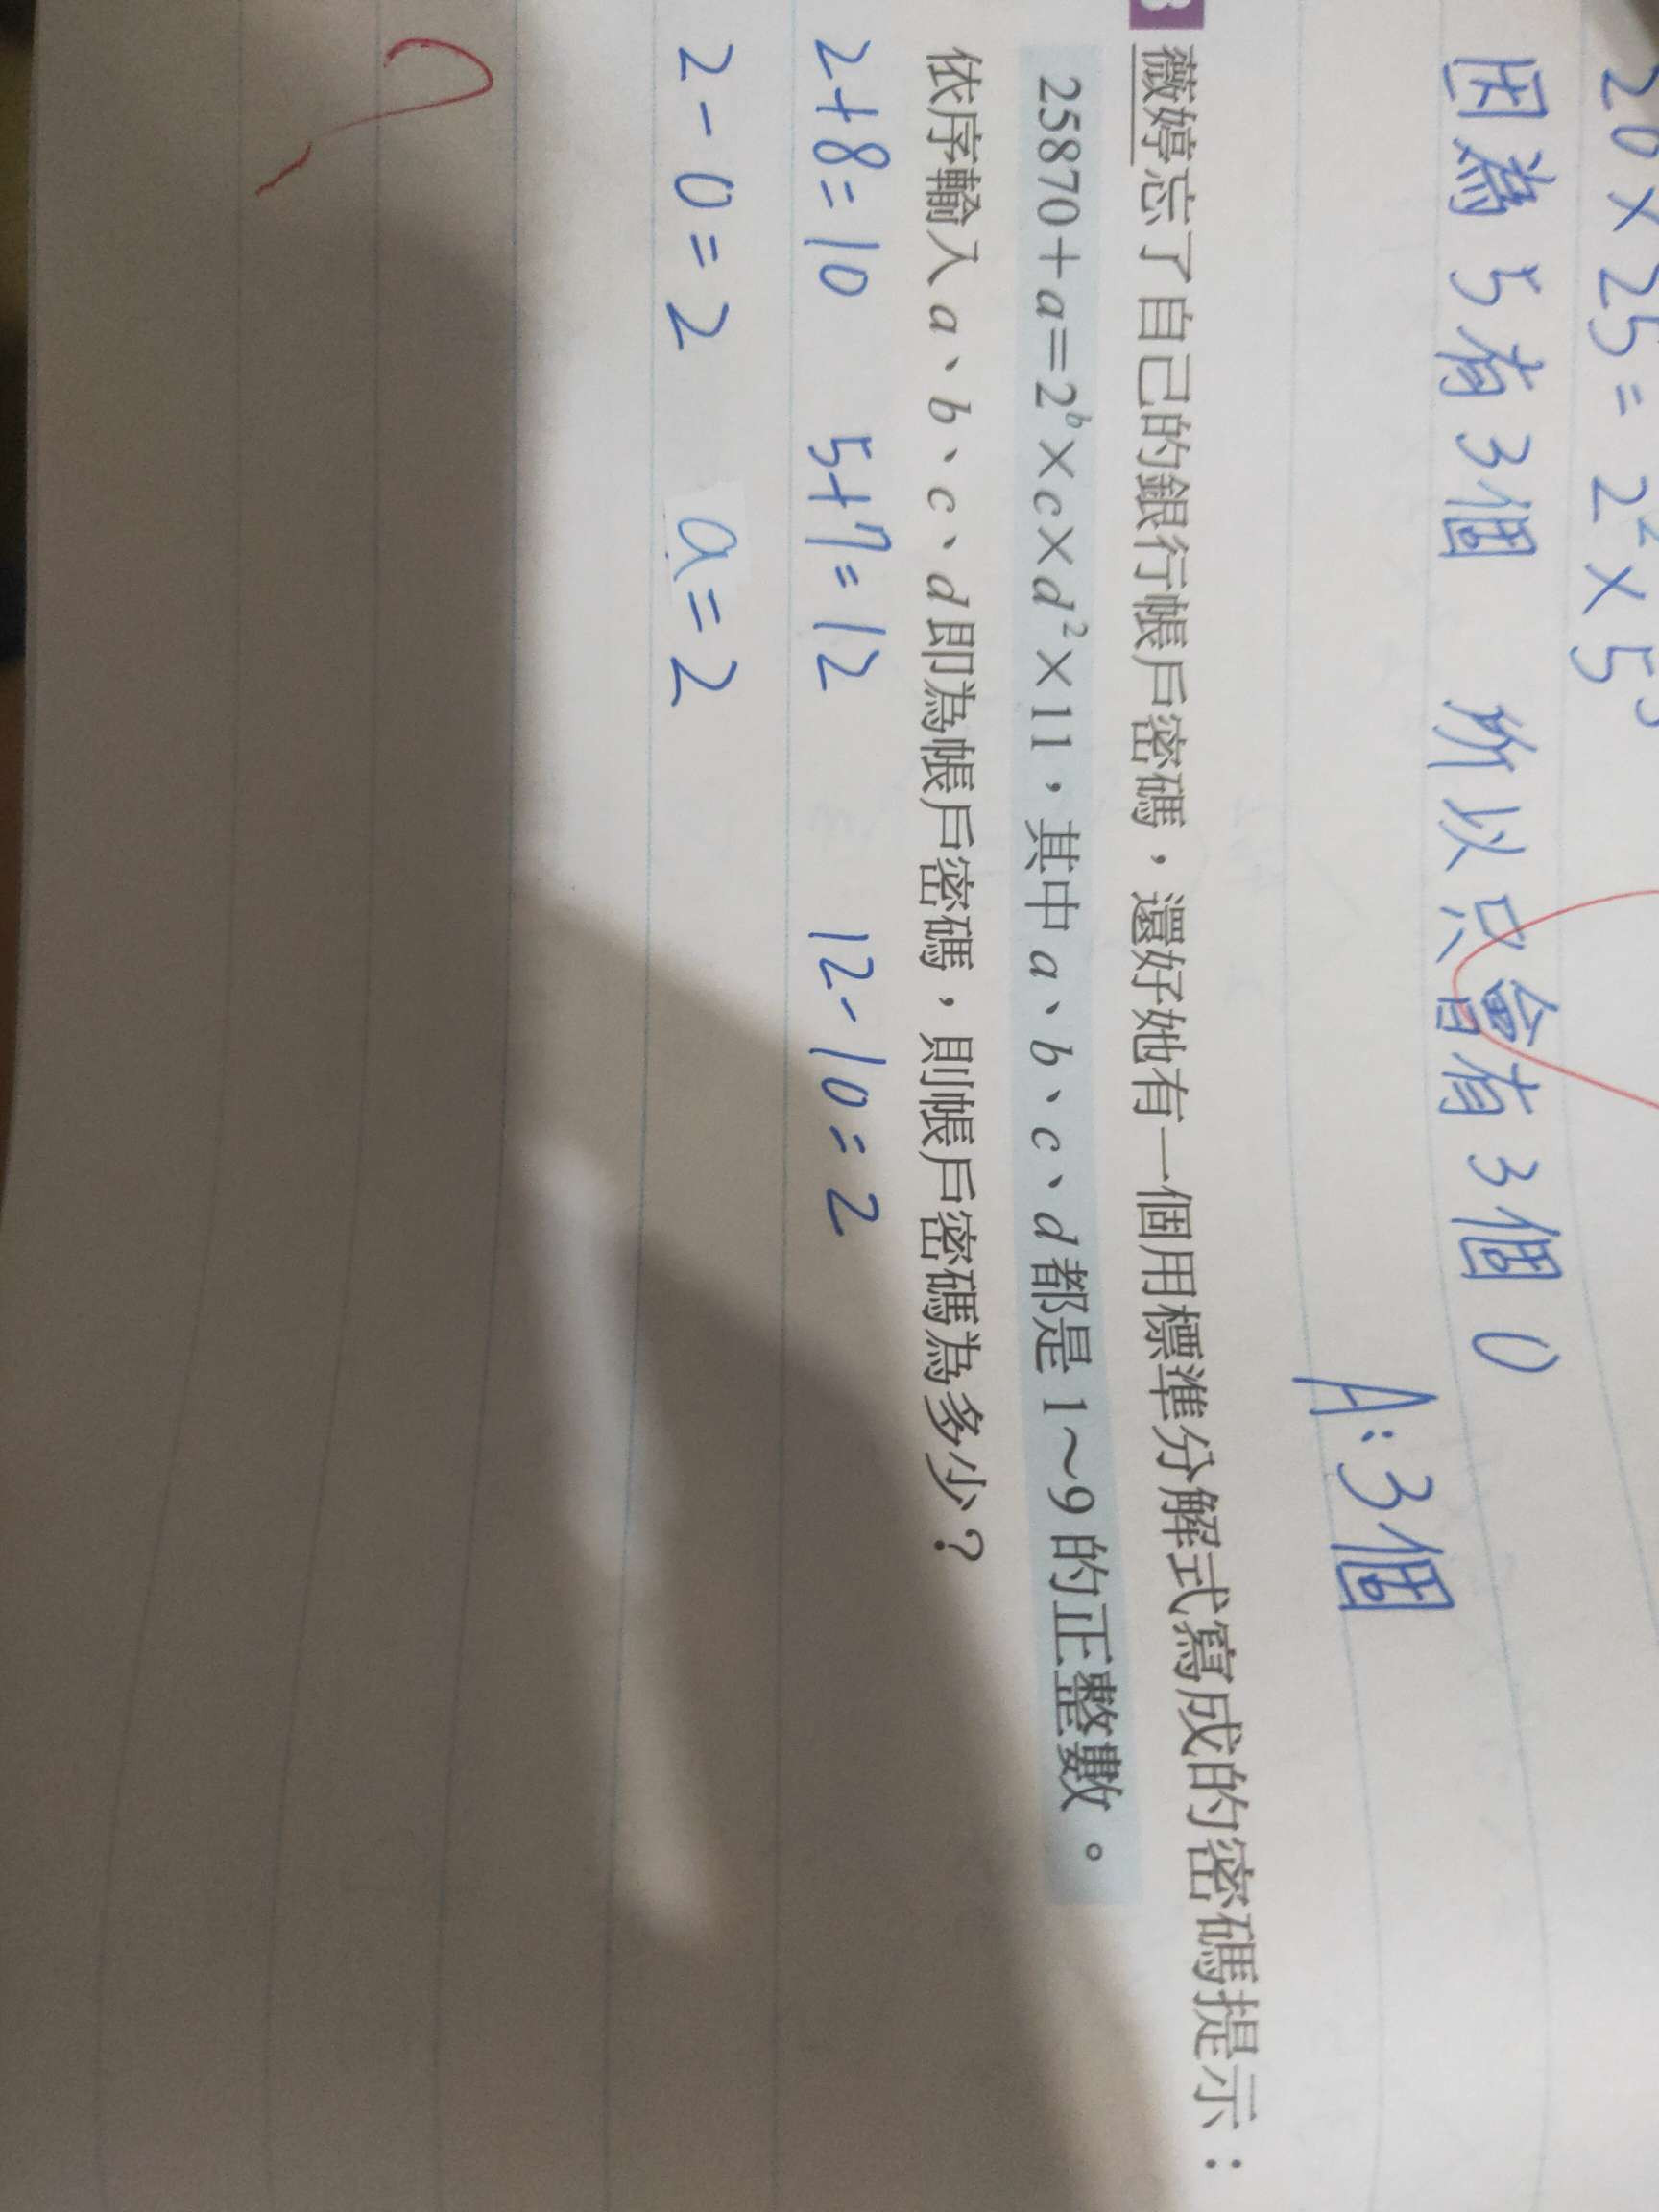 20×25=2²×5³
因為5有3個 所以只會有3個0
A:3個
薇婷忘了自己的銀行帳戶密碼，還好她有一個用標準分解式寫成的密碼提示：
25870＋a＝2ᵇ×c×d²×11，其中a、b、c、d都是1～9的正整數。
依序輸入a、b、c、d即為帳戶密碼，則帳戶密碼為多少？
2+8=10 5+7=12 12-10=2
2-0=2 a=2